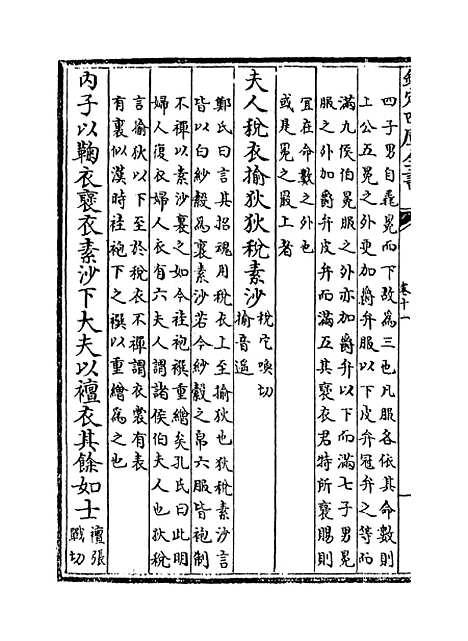 欽定四庫全書
卷十一
四子男自毳冕而下改為三也凡服各依其命數則
上公五冕之外更加爵弁服以下皮弁冠弁之等而
滿九侯伯冕服之外亦加爵弁以下而滿七子男冕
服之外加爵弁皮弁而滿五其褒衣君特所褒賜則
宜在命數之外也
或是冕之最上者
夫人稅衣揄狄狄稅素沙
稅它喚切
揄音遥
鄭氏曰言其招魂用稅衣上至揄狄也狄稅素沙言
皆以白紗縠為裏素沙若今紗縠之帛六服皆袍制
不襌以素沙裏之如今袿袍襈重繒矣孔氏曰此明
婦人復衣婦人衣有六夫人謂諸侯伯夫人也狄稅
言揄狄以下至於稅衣不襌謂衣裳有表
有裏似漢時袿袍下之襈以重繒為之也
内子以鞠衣褒衣素沙下大夫以襢衣其餘如士
襢張
戰切